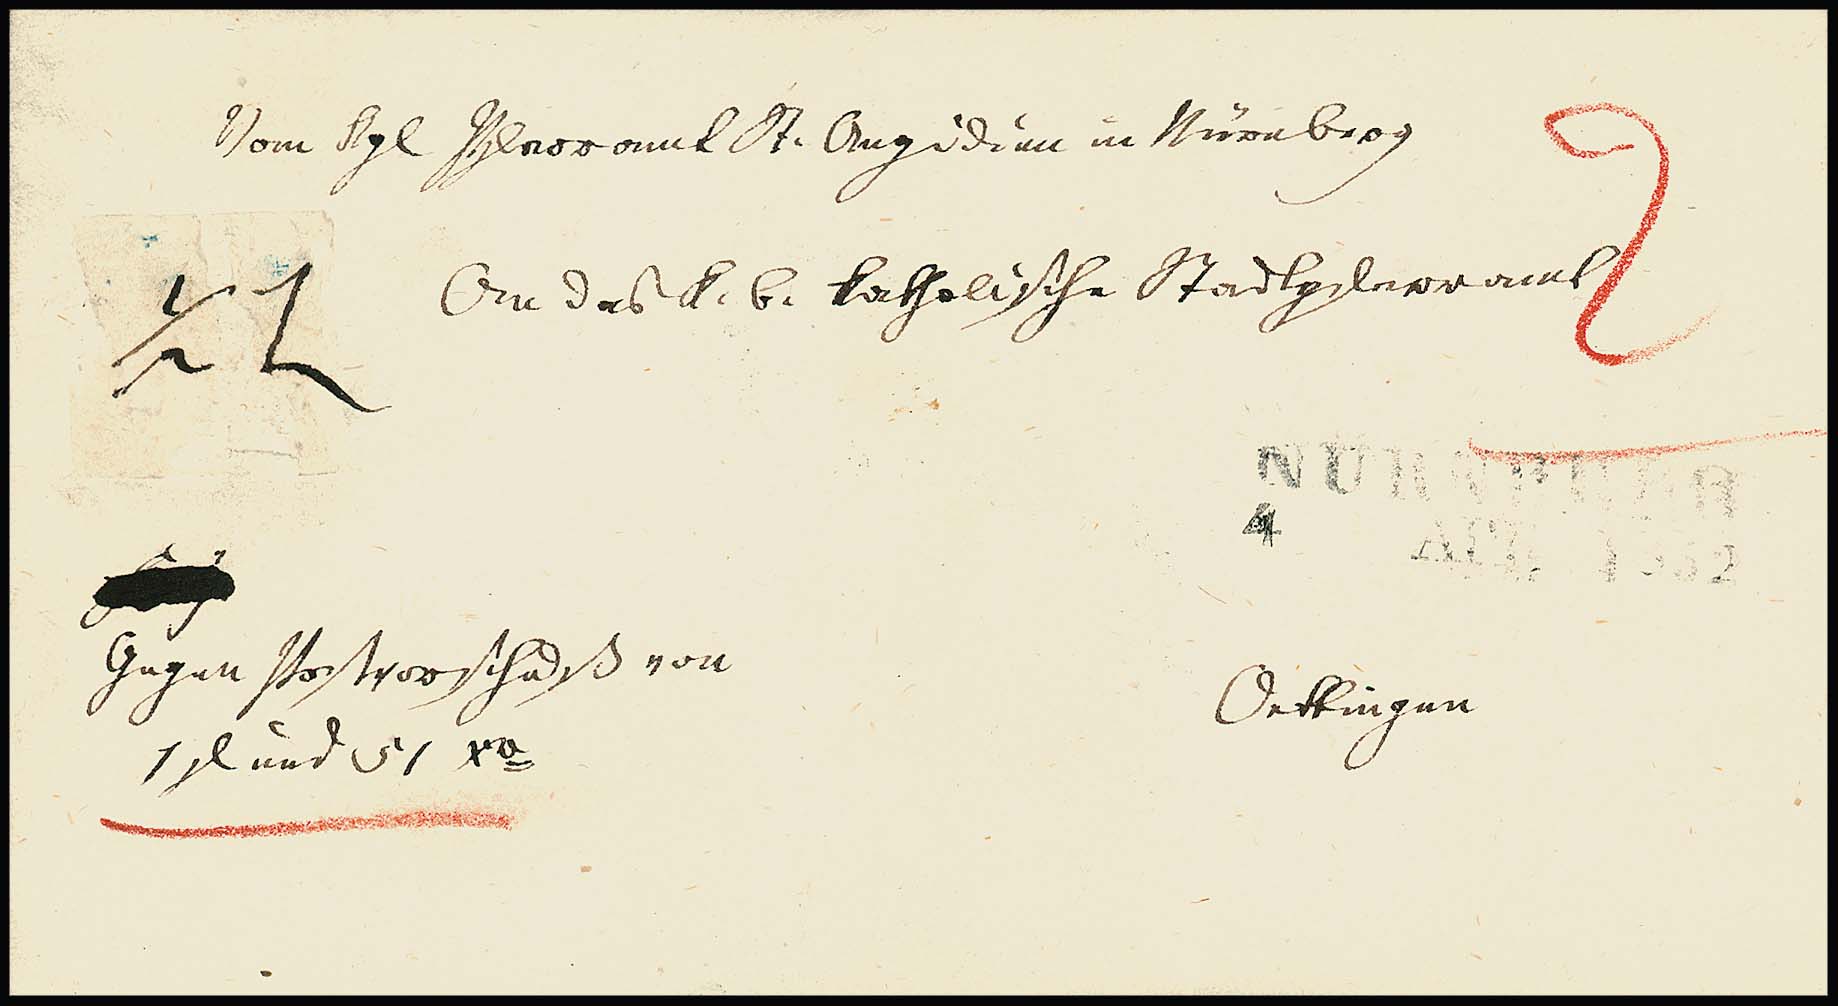 Vom Kgl Pfarramt St. Aegidien in Nürnberg
An das K. b. katholische Stadtpfarramt
1/2 L
2
NÜRNBERG
4 APR. 1852
Gegen Postvorschuß von
1 fl und 51 xr
Oettingen